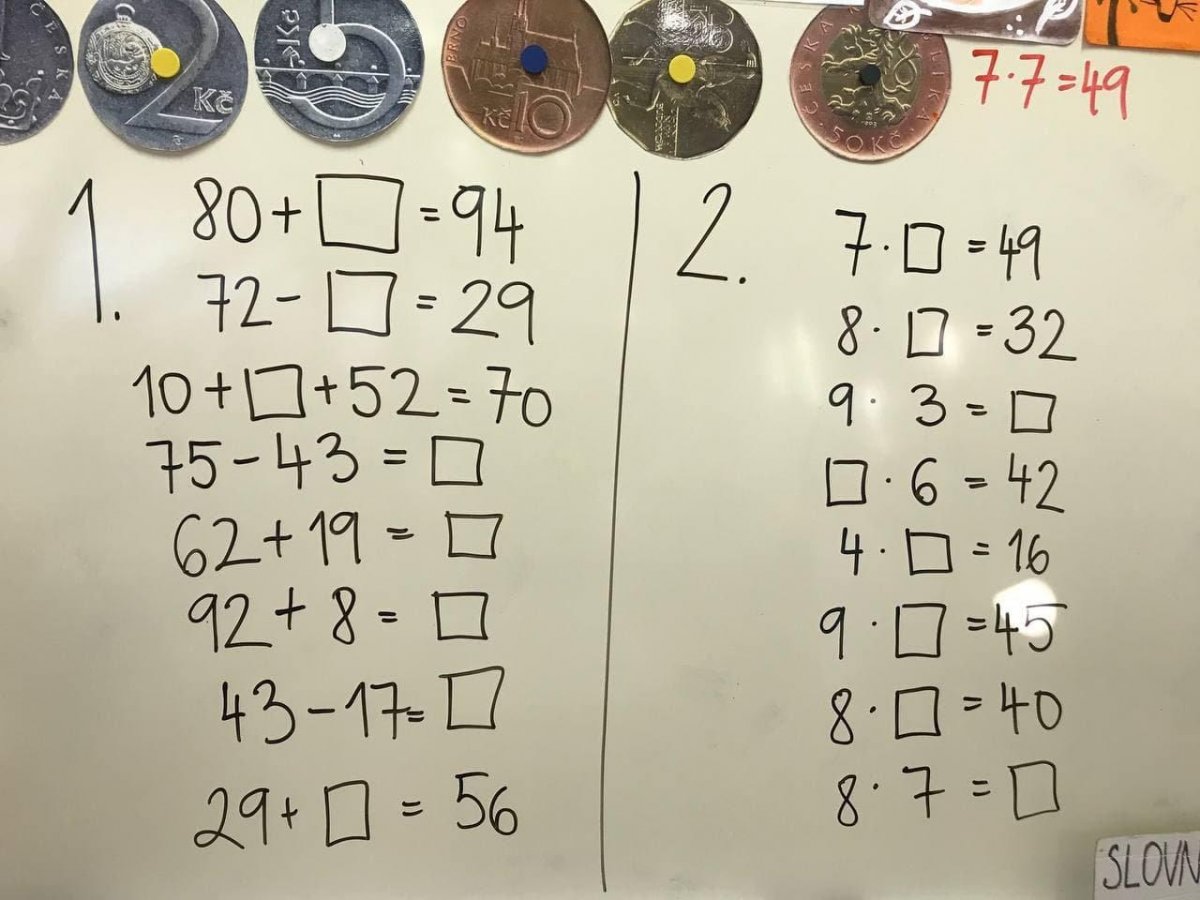 ČESKÁ
2 Kč
5 Kč
BRNO
Kč 10
50 KČ
7·7=49
1.
80+□=94
72-□=29
10+□+52=70
75-43=□
62+19=□
92+8=□
43-17=□
29+□=56
2.
7·□=49
8·□=32
9·3=□
□·6=42
4·□=16
9·□=45
8·□=40
8·7=□
SLOVN